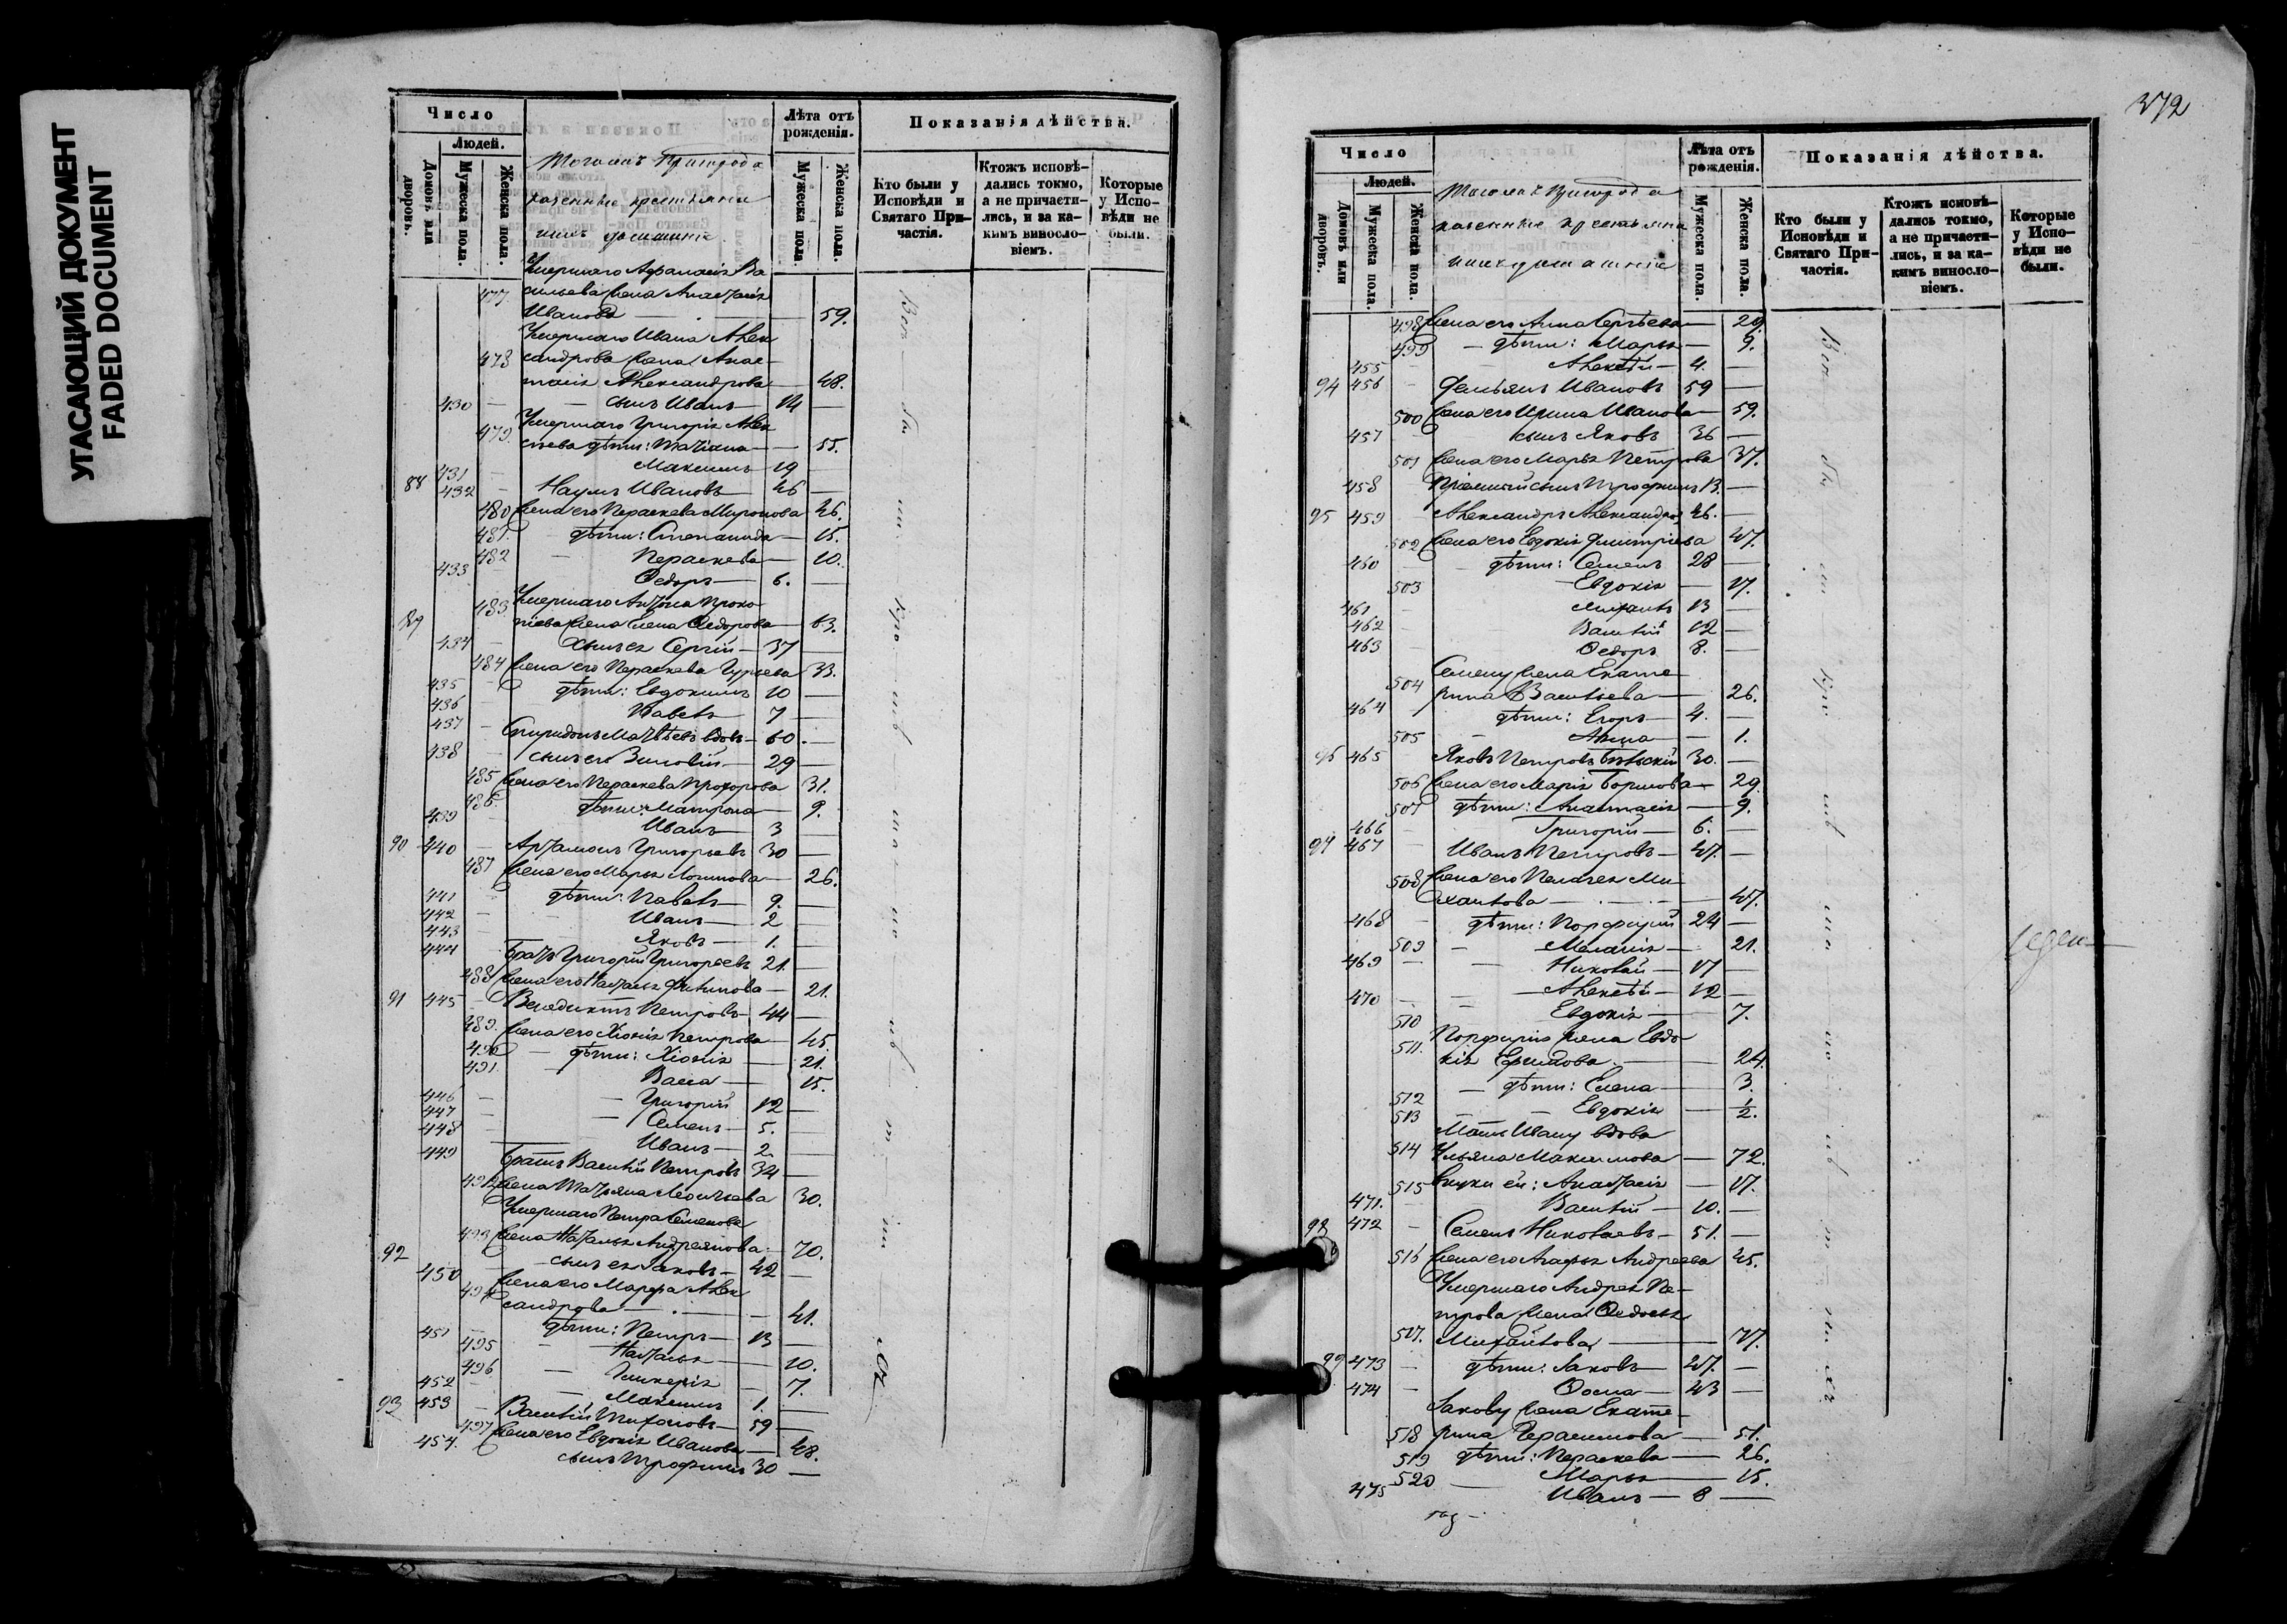 УГАСАЮЩИЙ ДОКУМЕНТ
FADED DOCUMENT
Число
Людей.
Домовъ или дворовъ.
Мужеска пола.
Женска пола.
Лѣта отъ рожденія.
Мужеска пола.
Женска пола.
Показанія дѣйства.
Кто были у Исповѣди и Святаго Причастія.
Ктожъ исповѣдались токмо, а не причастились, и за какимъ винословіемъ.
Которые у Исповѣди не были.
Тогожъ Пригорода
казенные крестьяне
ихъ домашніе
Умершаго Афанасія Ва
477 сильева жена Анастасія
Иванова — 59.
Умершаго Ивана Алек
478 сандрова жена Анас-
тасія Александрова — 48.
430 сынъ Иванъ — 14 —
Умершаго Григорія Алек
479. сѣева дѣти: Татіана — 55.
431 Максимъ — 19 —
88 432 Наумъ Ивановъ — 46 —
480 Жена его Параскева Миронова 46.
481. дѣти: Степанида — 15.
482 Параскева — 10.
433 Ѳедоръ — 6. —
Умершаго Антона Проко
89 483 піева жена Елена Ѳедорова — 63.
434 сынъ ея Сергій — 37 —
484 Жена его Параскева Гурьева 33.
435 дѣти: Евдокимъ 10 —
436 Павелъ 7 —
437 Спиридонъ Матвѣевъ вдовъ — 60. —
438 сынъ его Зиновій — 29 —
485 Жена его Параскева Прохорова 31.
486. дѣти: Матрона — 9.
439 Иванъ — 3 —
90 440 Артамонъ Григорьевъ 30 —
487 Жена его Марья Логинова — 26.
441 дѣти: Павелъ — 9. —
442 Иванъ — 2 —
443 Яковъ — 1. —
444 Братъ Григорій Григорьевъ 21. —
488 Жена его Наталья Филипова — 21.
91 445 Венедиктъ Петровъ 44 —
489. Жена его Хіонія Петрова 45.
490 дѣти: Хіонія — 21.
491 Васса — 15.
446 Григорій 12 —
447 Семенъ — 5. —
448 Иванъ — 2 —
449 Братъ Василій Петровъ 34 —
492 Жена Татьяна Леонтьева 30.
Умершаго Петра Семенова
92 493 Жена Наталья Андреянова — 70.
450 сынъ ея Іаковъ — 42 —
494 Жена его Марѳа Алек
сандрова — 41.
451 дѣти: Петръ — 13 —
495 Наталья — 10.
496 Гликерія — 7.
452 Максимъ 1. —
93 453 Василій Тихоновъ — 59 —
497 Жена его Евдокія Иванова — 48.
454. сынъ Трофимъ 30 —
372
Число
Людей.
Домовъ или дворовъ.
Мужеска пола.
Женска пола.
Лѣта отъ рожденія.
Мужеска пола.
Женска пола.
Показанія дѣйства.
Кто были у Исповѣди и Святаго Причастія.
Ктожъ исповѣдались токмо, а не причастились, и за какимъ винословіемъ.
Которые у Исповѣди не были.
Тогожъ Пригорода
казенные крестьяне
ихъ домашніе
498 Жена его Анна Сергѣева — 29.
499 дѣти: Марья — 9.
455 Алексѣй — 4. —
94 456 Демьянъ Ивановъ 59 —
500 Жена его Ирина Иванова — 59.
457 сынъ Яковъ 36 —
501 Жена его Марья Петрова 37.
458 Пріемный сынъ Трофимъ 13. —
95 459 Александръ Александров 46. —
502 Жена его Евдокія Димитріева 47.
460 дѣти: Семенъ 28 —
503 Евдокія — 17.
461 Михаилъ 13 —
462 Василій 12 —
463 Ѳедоръ 8. —
Семену жена Екате
504 рина Васильева — 26.
464 дѣти: Егоръ — 4. —
505 Анна — 1.
96 465 Яковъ Петровъ Бѣльскій 30. —
506 Жена его Марія Борисова — 29.
507 дѣти: Анастасія — 9.
466 Григорій — 6. —
97 467 Иванъ Петровъ — 47. —
508 Жена его Пелагея Ми-
хаилова — 47.
468 дѣти: Порфирій 24 —
509 Меланія — 21.
469 Николай — 17 —
470 Алексѣй — 12 —
510 Евдокія — 7.
511. Порфирія жена Евдо-
кія Ермилова — 24.
512 дѣти: Елена — 3.
513 Евдокія — 1/2.
Мать Ивану вдова
514 Ульяна Максимова — 72.
515 внуки ей: Анастасія — 17.
471. Василій — 10. —
98 472 Семенъ Николаевъ — 51. —
516 Жена его Агафья Андреева 45.
Умершаго Андрея Пе-
трова жена Ѳедосья
517. Михаилова — 77.
99 473 дѣти: Іаковъ — 47. —
474 Ѳома — 43 —
Іакову жена Екате-
518 рина Герасимова — 51.
519 дѣти: Параскева — 26.
520 Марья — 15.
475 Иванъ — 8 —